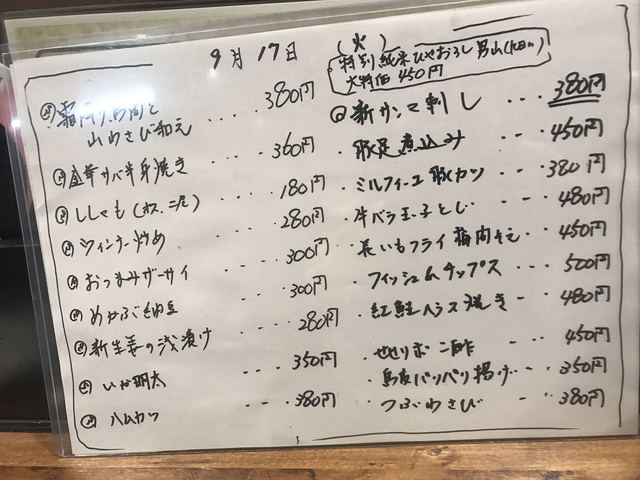 9月17日 (火)
特別 純米ひやおろし 男山(北海)
大特価 450円
霜降り馬肉と
山わさび和え ... 380円
金華サバ半身焼き ... 360円
ししゃも(オス、二尾) ... 180円
ウィンナー炒め ... 280円
おつまみザーサイ ... 300円
めかぶ納豆 ... 300円
新生姜の浅漬け ... 280円
いか明太 ... 350円
ハムカツ ... 380円
新サンマ刺し ... 380円
豚足煮込み ... 450円
ミルフィーユ豚カツ ... 380円
牛バラ玉子とじ ... 480円
長いもフライ 梅肉そえ ... 450円
フィッシュ&チップス ... 500円
紅鮭ハラス焼き ... 480円
せせりポン酢 ... 450円
鳥皮パリパリ揚げ ... 350円
つぶわさび ... 380円